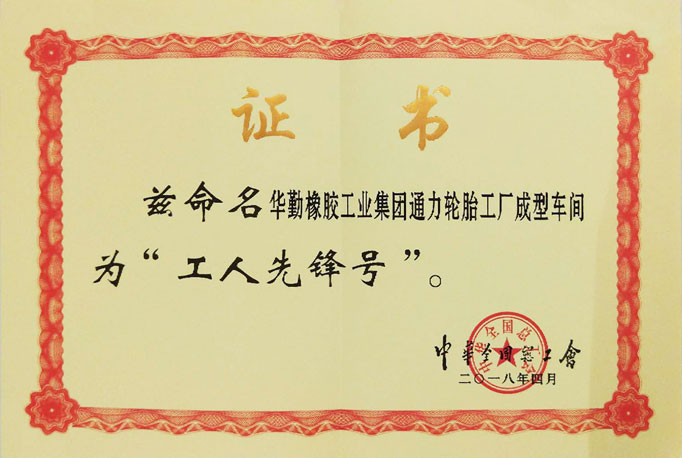 证书
兹命名华勤橡胶工业集团通力轮胎工厂成型车间
为“工人先锋号”。
中华全国总工会
中華全国總工會
二〇一八年四月